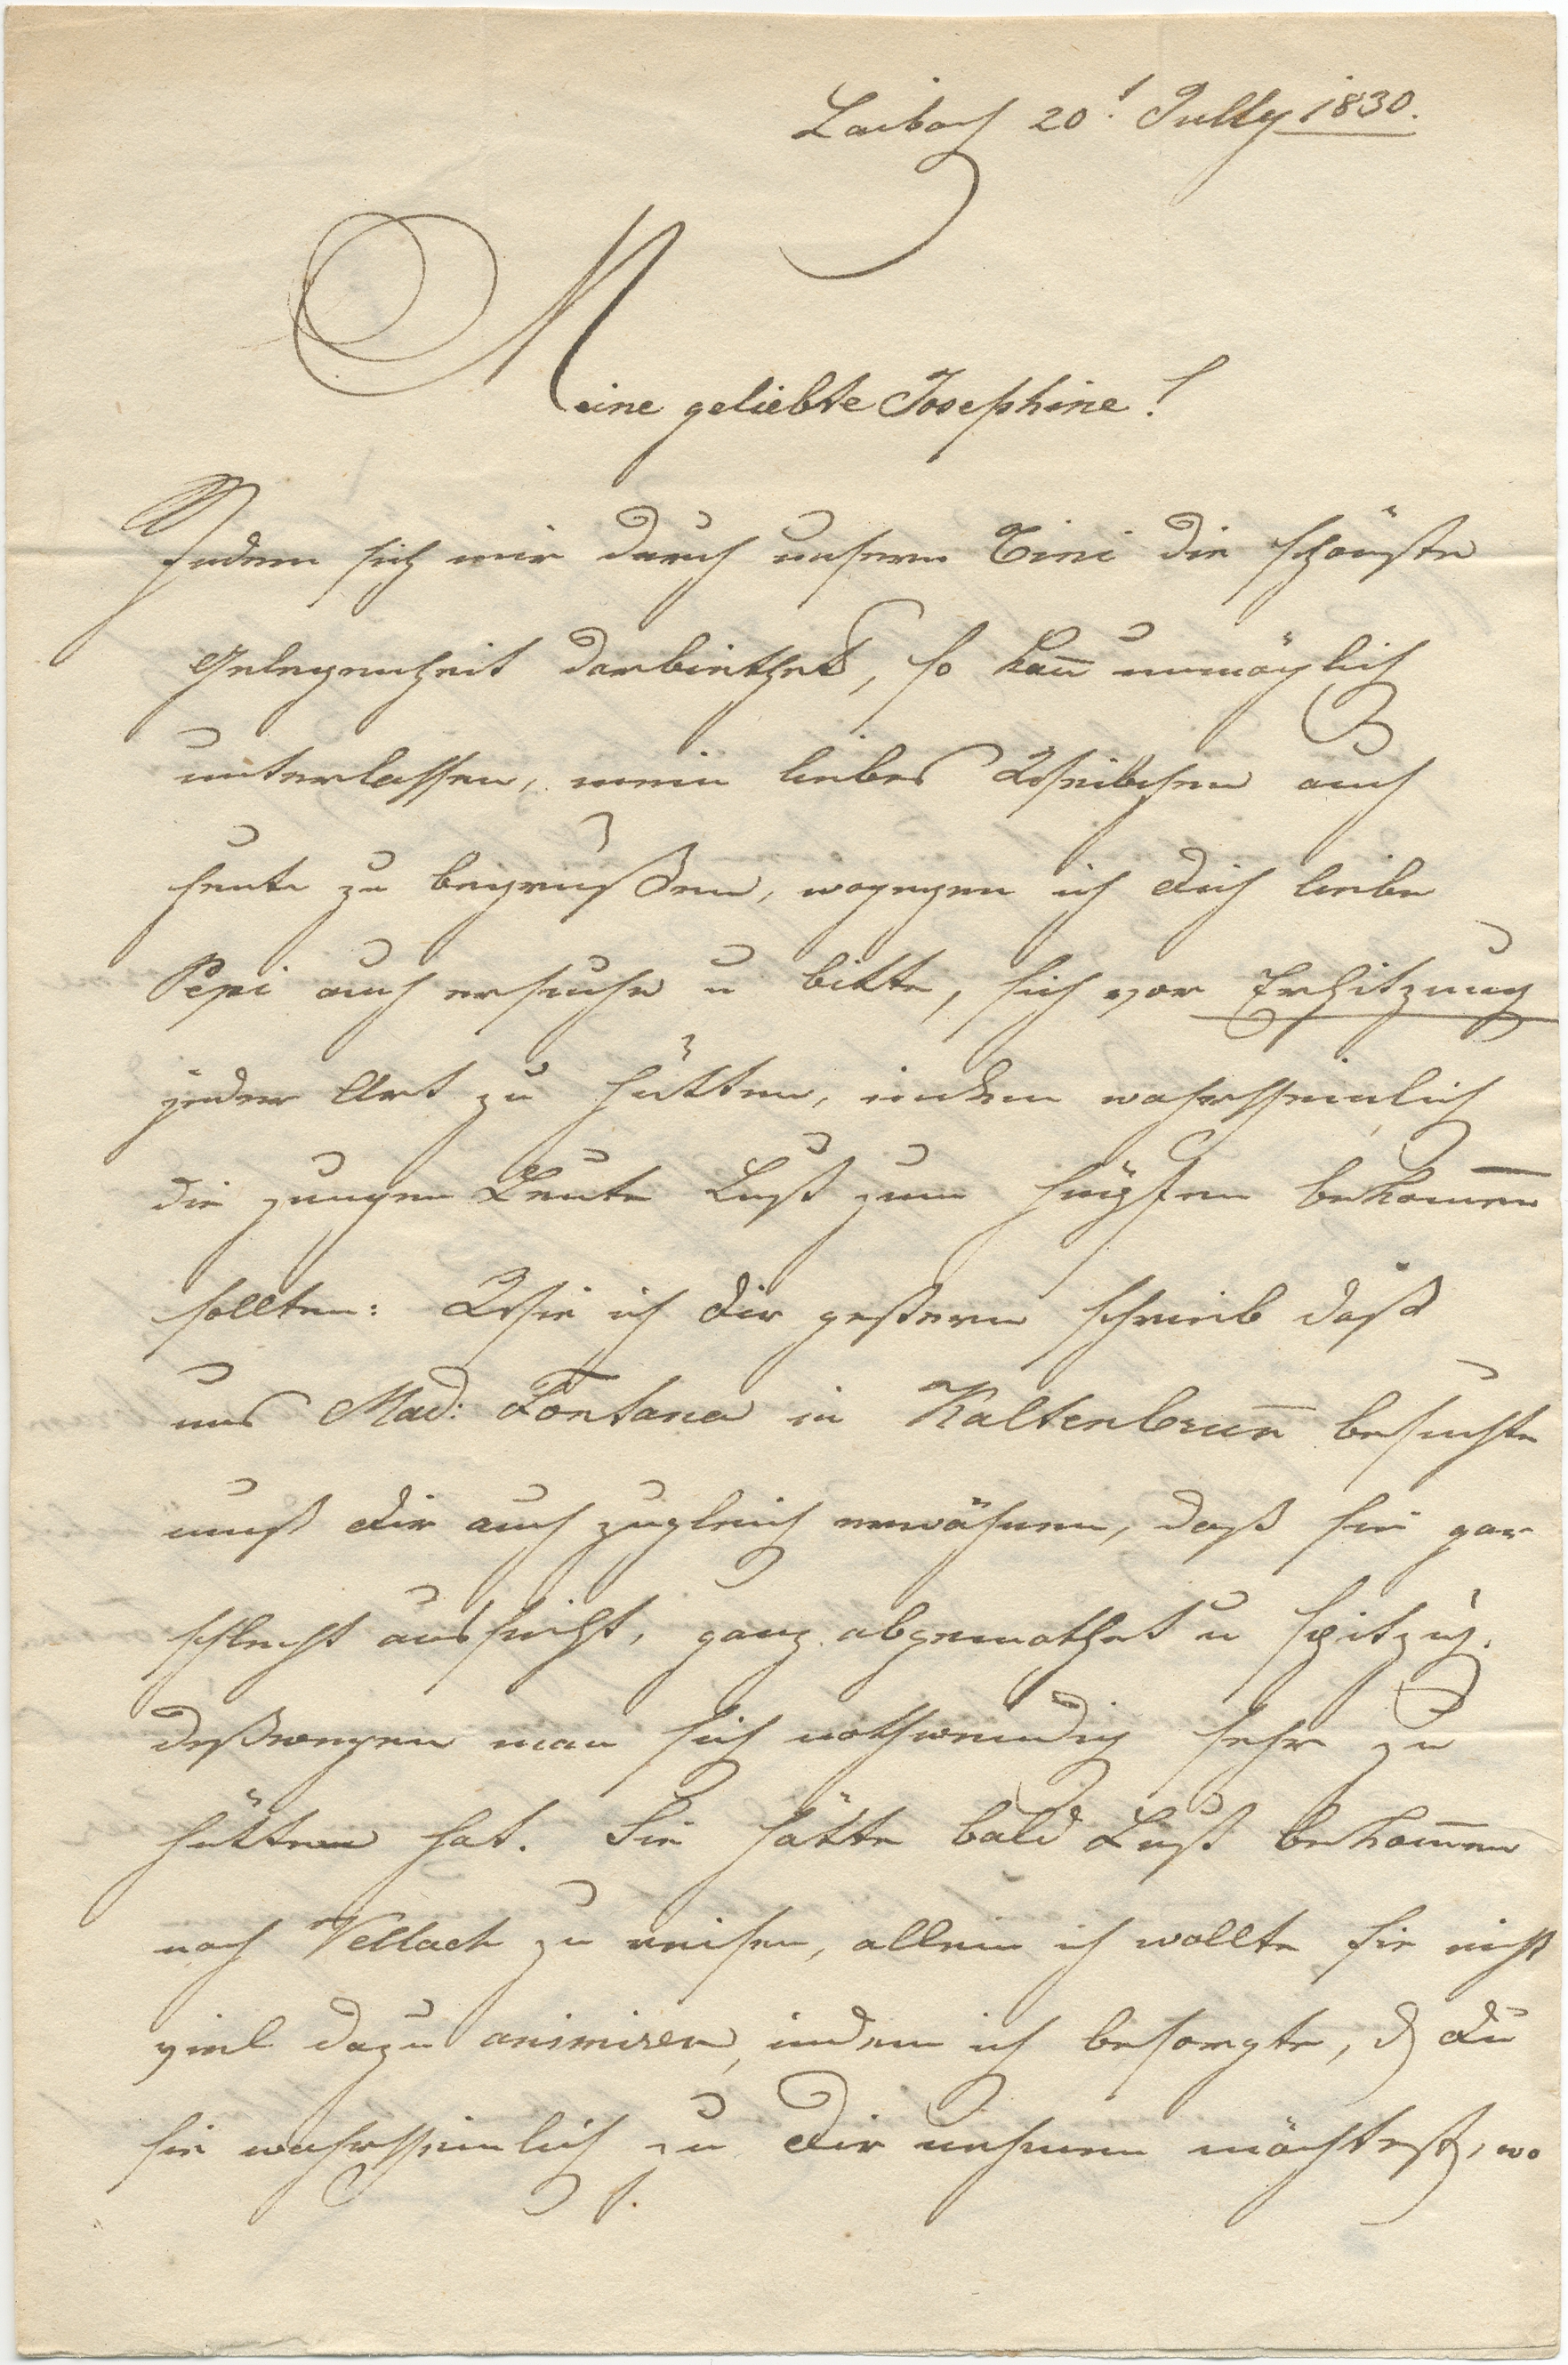 Laibach 20t July 1830.
Meine geliebte Josephine!
Indem sich mir durch unsern Tini die schönste
Gelegenheit darbiethet, so kan̄ unmöglich
unterlassen, mein liebes Weibchen auch
heute zu begrüßen, wogegen ich dich liebe
Pepi auch ersuche u bitte, sich vor Erhitzung
jeder Art zu hütten, indem wahrscheinlich
die jungen Leute Lust zum hüpfen bekom̄en
sollten: Wie ich dir gestern schrieb daß
uns Mad: Fontana in Kaltenbrun̄ besuchte
muß dir auch zugleich erwähnen, daß sie gar
schlecht aussieht, ganz abgemathet u spitzig.
deßwegen man sich nothwendig sehr zu
hütten hat. Sie hätte bald Lust bekom̄en
nach Vellach zu reisen, allein ich wollte sie nicht
viel dazu animiren, indem ich besorgte, d du
sie wahrscheinlich zu dir nehmen möchtest, wo